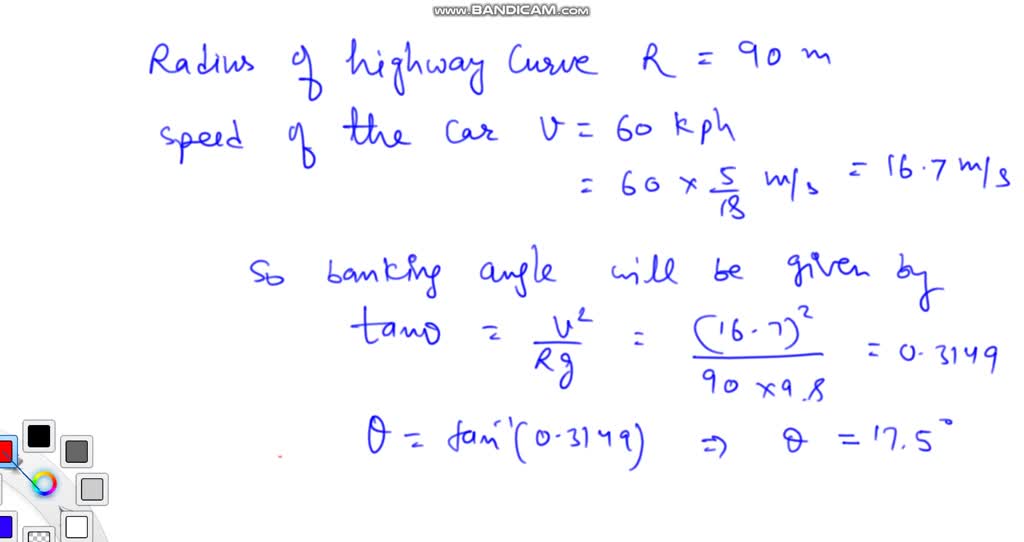 www.BANDICAM.com
Radius of highway Curve R = 90 m
speed of the car v = 60 kph
= 60 × 5/18 m/s = 16.7 m/s
So banking angle will be given by
tanθ = v²/Rg = (16.7)²/90 × 9.8 = 0.3149
θ = tan⁻¹(0.3149) ⇒ θ = 17.5°